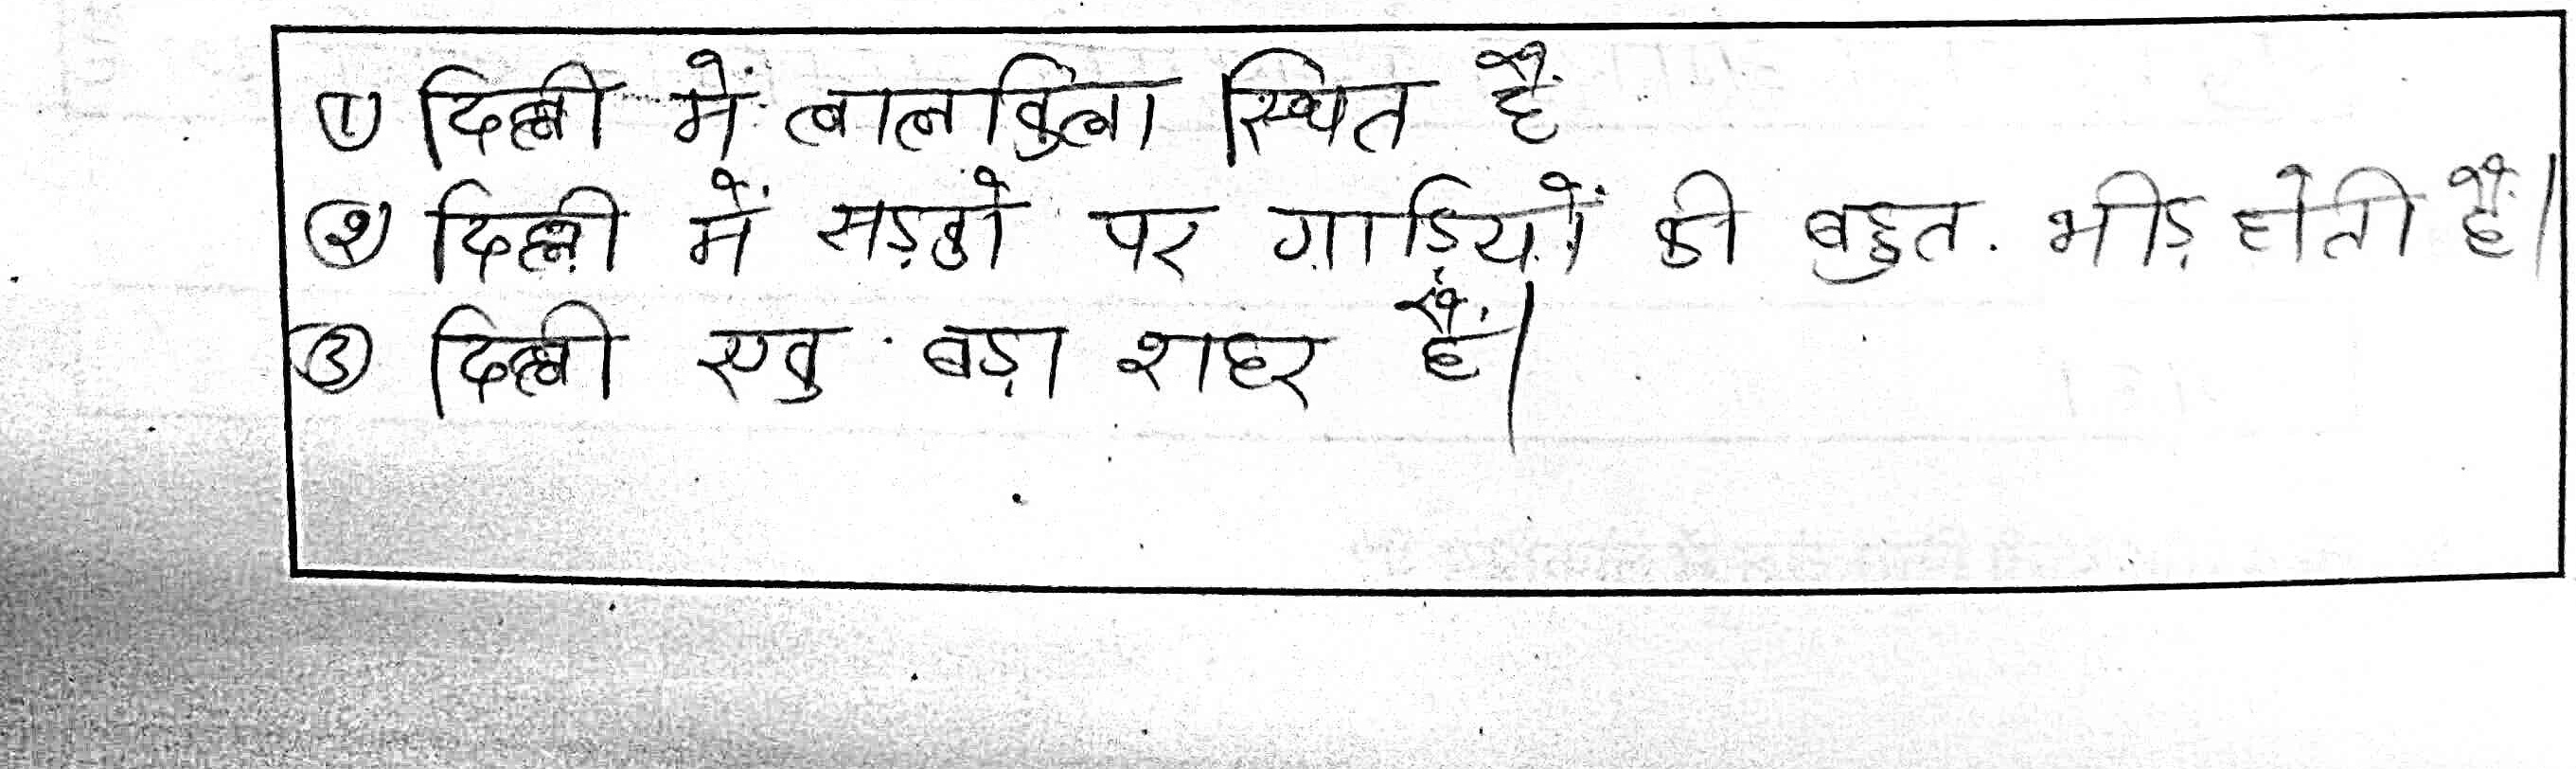 ① दिल्ली में लालकिला स्थित हैं
② दिल्ली में सड़को पर गाड़ियों की बहुत भीड़ होती हैं।
③ दिल्ली एक बड़ा शहर हैं।